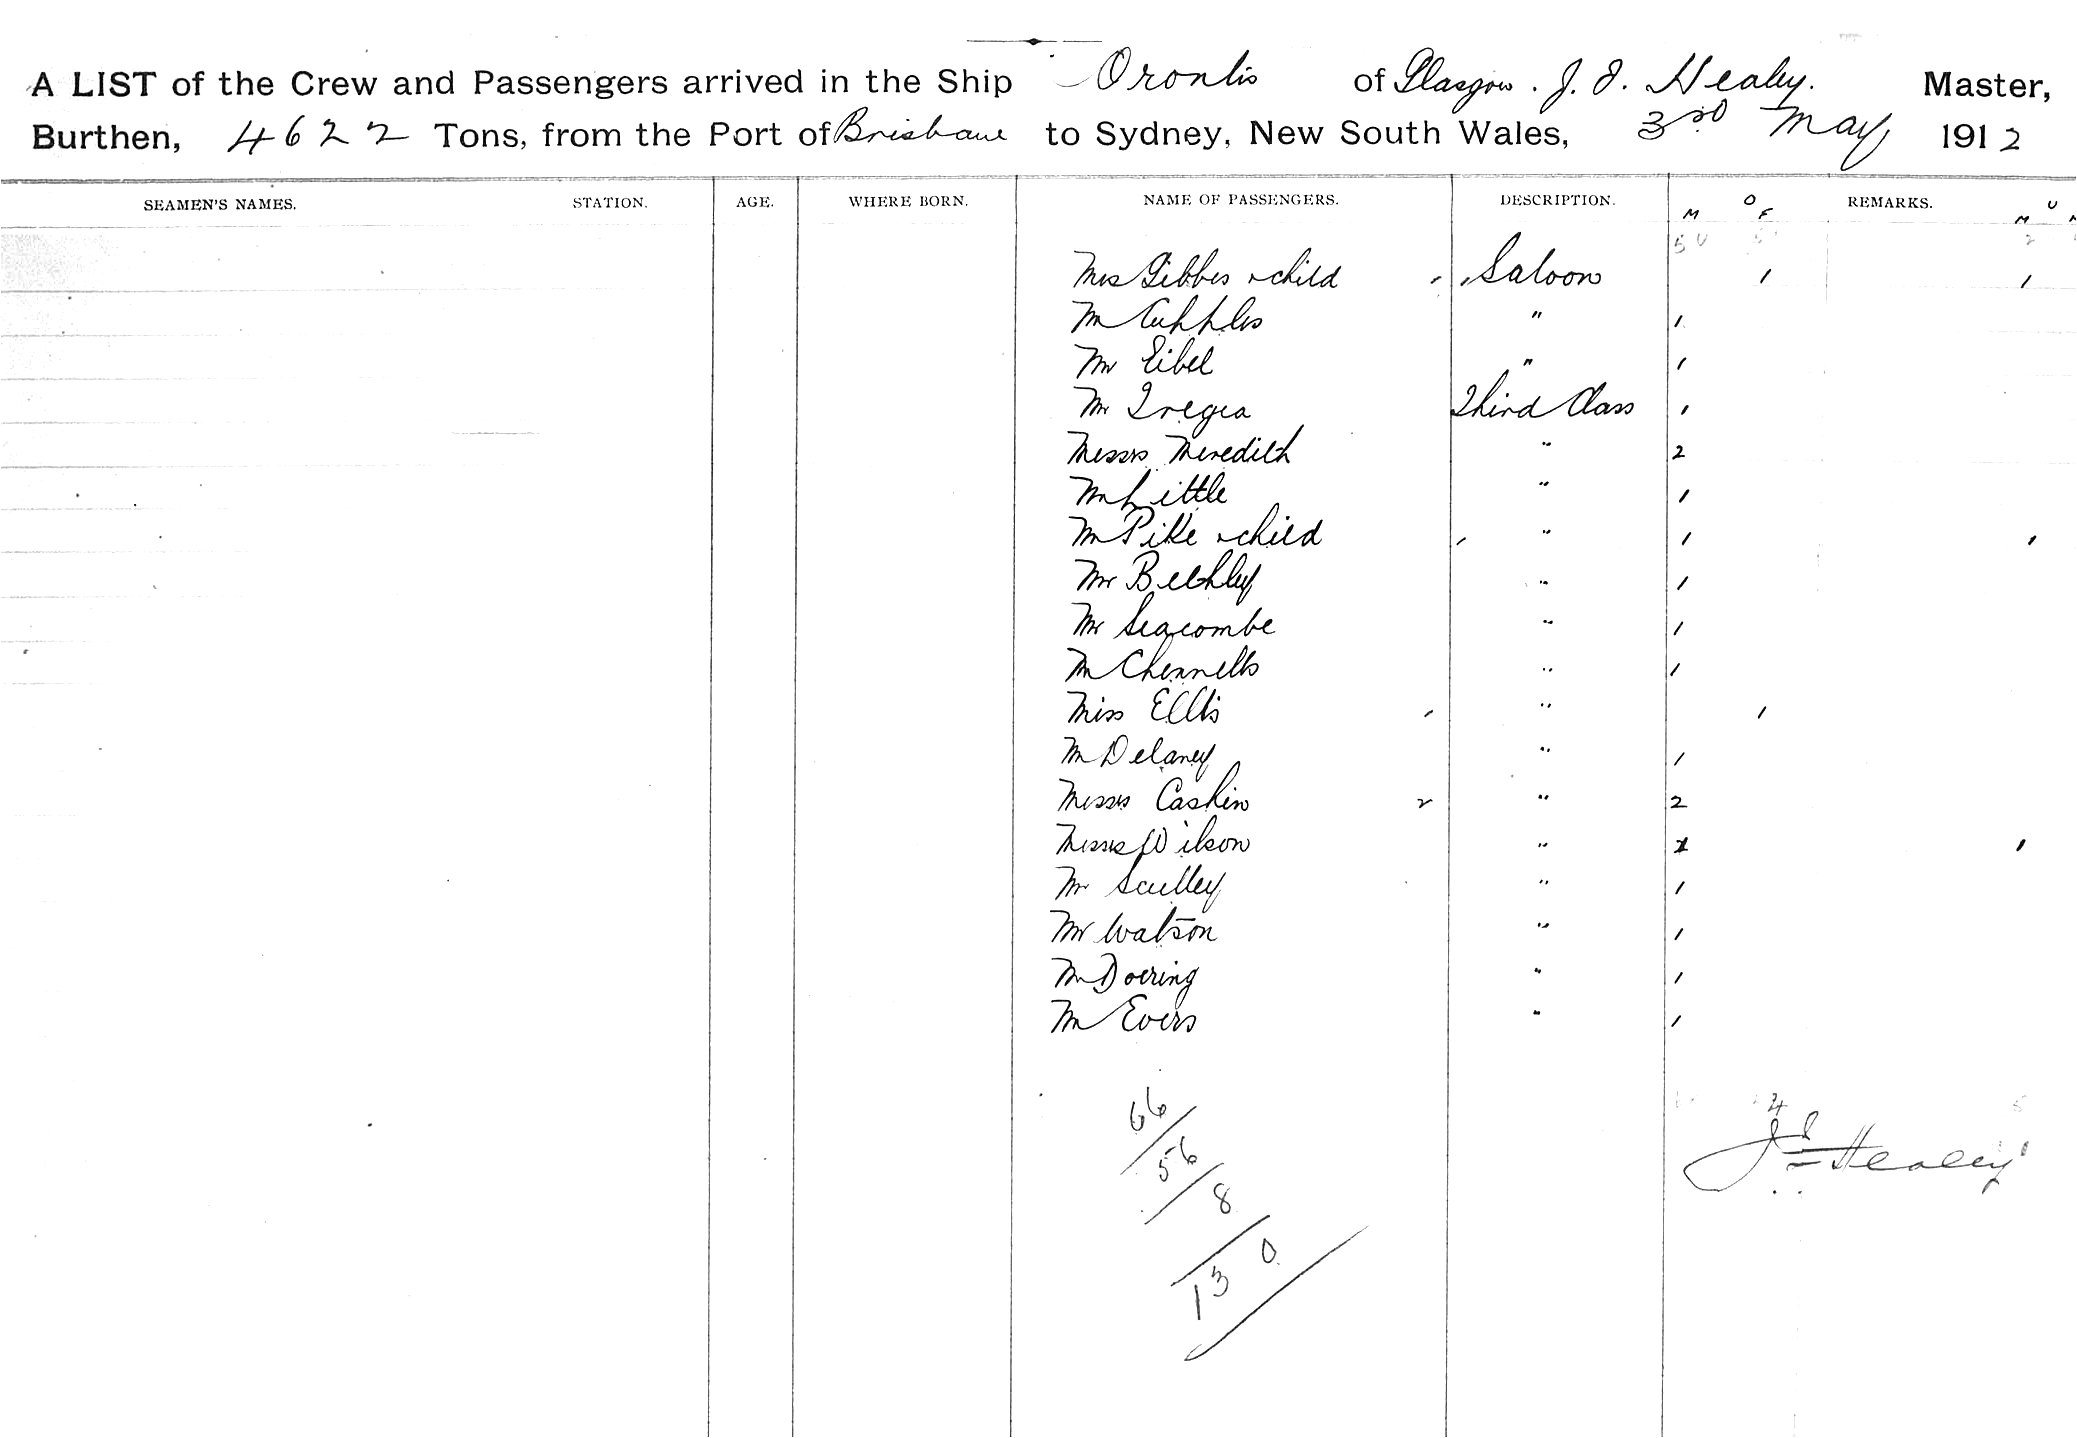 A LIST of the Crew and Passengers arrived in the Ship Orontis of Glasgow. J. J. Healey. Master,
Burthen, 4622 Tons, from the Port of Brisbane to Sydney, New South Wales, 3rd May 1912
SEAMEN'S NAMES. STATION. AGE. WHERE BORN. NAME OF PASSENGERS. DESCRIPTION. REMARKS.
M O F M U
Mrs Gibbes & child Saloon 1 1
Mr " 1
Mr Eibel " 1
Mr Tregea Third Class 1
Messrs Meredith " 2
Mr Little " 1
Mr Pike & child " 1 1
Mr " 1
Mr Seacombe " 1
Mr Chennells " 1
Miss Ellis " 1
Mr Delaney " 1
Messrs Cashin 2 " 2
Messrs Wilson " 1 1
Mr Sculley " 1
Mr Watson " 1
Mr Doering " 1
Mr Evers " 1
66
56
8
130
4
Healey